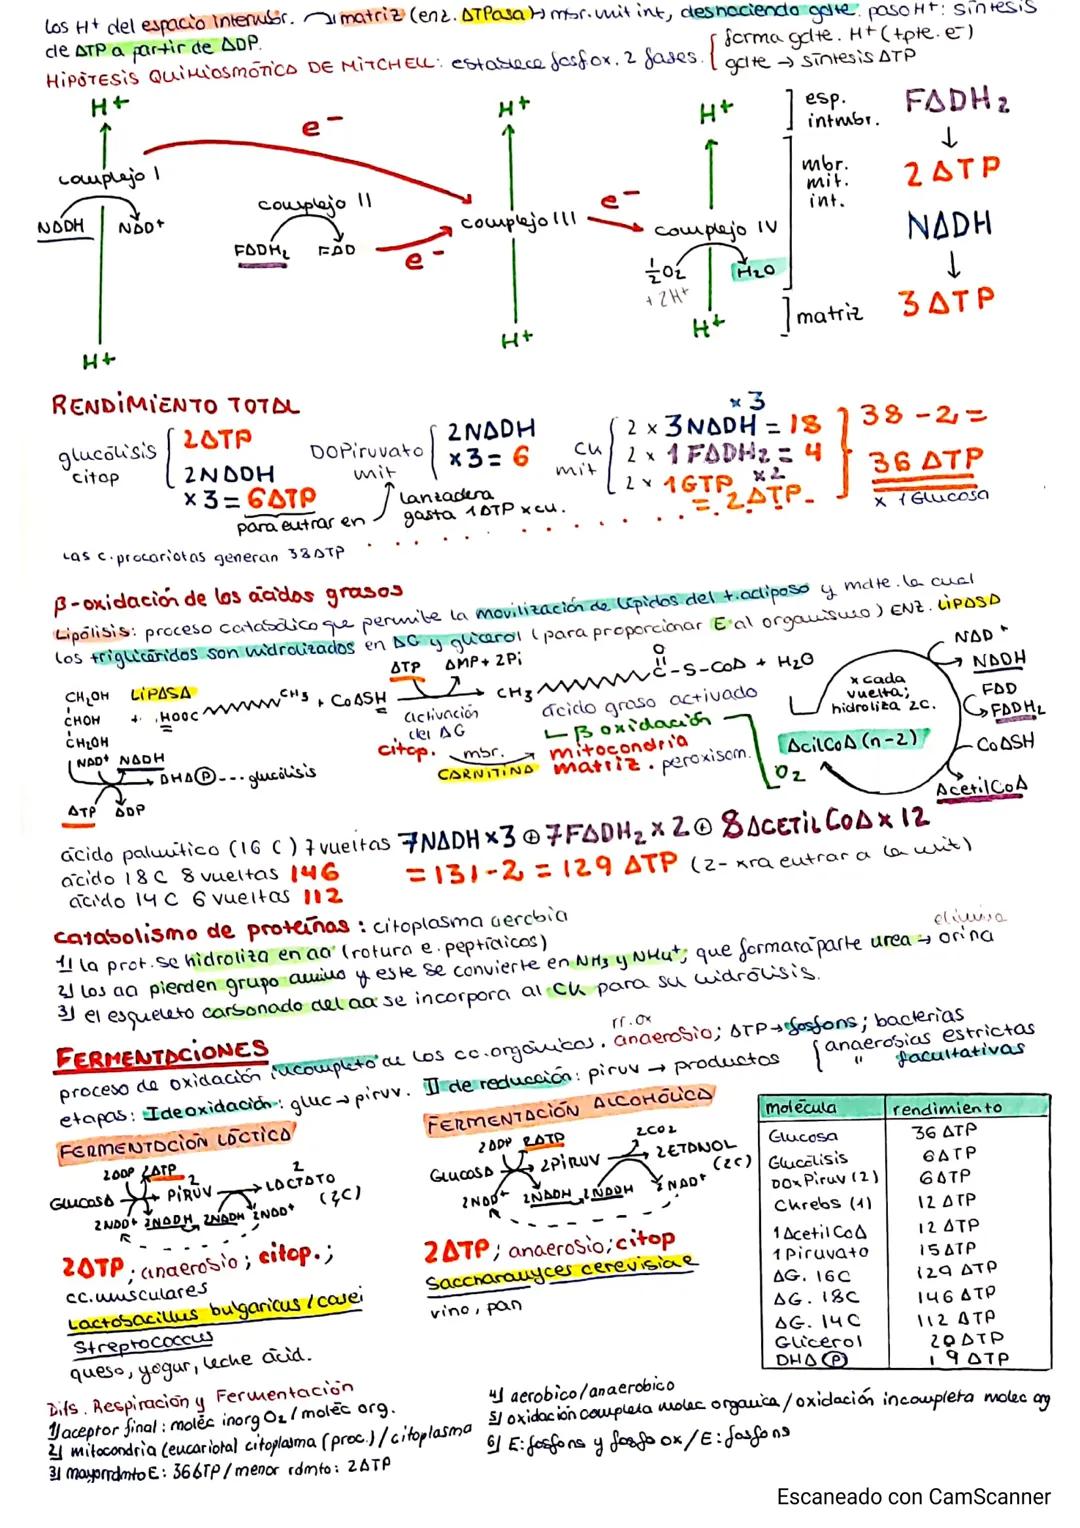 los H+ del espacio intermbr. → matriz (enz. ATPasa) mbr. mit int, deshaciendo gdte. paso H+: síntesis
de ATP a partir de ADP.
HIPÓTESIS QUIMIOSMÓTICA DE MITCHELL: establece fosfox. 2 fases. forma gdte. H+ (tpte. e-)
gdte → síntesis ATP
H+ e- H+ H+ esp. intmbr.
complejo I
NADH NAD+
complejo II
FADH2 FAD
e-
complejo III
e-
complejo IV
½O2 + 2H+ H2O
H+ H+ H+
mbr. mit. int.
matriz
FADH2
↓
2 ATP
NADH
↓
3 ATP
RENDIMIENTO TOTAL
glucólisis citop
2ATP
2NADH
x3 = 6ATP
para entrar en mit
DOPiruvato
2NADH
x3 = 6
lanzadera
gasta 1 ATP x cu.
CK mit
x3
2 x 3NADH = 18
2 x 1 FADH2 = 4
x2
2 x 1GTP = 2ATP
38 - 2 =
36 ATP
x 1 Glucosa
Las c. procariotas generan 38 ATP
β-oxidación de los ácidos grasos
Lipólisis: proceso catabólico que permite la movilización de lípidos del t. adiposo y mdte. la cual
los triglicéridos son hidrolizados en AG y glicerol (para proporcionar E al organismo) ENZ. LIPASA
CH2OH LIPASA
CHOH + HOOC CH3 + CoASH
CH2OH
ATP AMP + 2Pi
activación del AG
citop.
CH3 C-S-CoA + H2O
O
ácido graso activado
β oxidación
mbr.
CARNITINA
mitocondria
matriz. peroxisom.
O2
NAD+ NADH
DHA P --- glucólisis
ATP ADP
x cada vuelta;
hidroliza 2C.
AcilCoA (n-2)
NAD+
NADH
FAD
FADH2
CoASH
AcetilCoA
ácido palmítico (16 C) 7 vueltas 7NADH x3 + 7FADH2 x 2 + 8 ACETILCOA x 12
ácido 18C 8 vueltas 146 = 131 - 2 = 129 ATP (2- xra entrar a la mit)
ácido 14C 6 vueltas 112
Catabolismo de proteínas: citoplasma aerobia
1) la prot. se hidroliza en aa (rotura e. peptídicos)
2) los aa pierden grupo amino y este se convierte en NH3 y NH4+; que formará parte urea → orina
elimina
3) el esqueleto carbonado del aa se incorpora al CK para su hidrólisis.
FERMENTACIONES
rr.ox
proceso de oxidación incompleto de los cc. orgánicos. anaerobio; ATP → fosfons; bacterias anaerobias estrictas
" facultativas
etapas: I de oxidación: gluc → piruv. II de reducción: piruv → productos
FERMENTACIÓN LÁCTICA
2ADP 2ATP
Glucosa 2 PIRUV 2 LACTATO (3C)
2NAD+ 2NADH 2NADH 2NAD+
2ATP; anaerobio; citop.;
cc. musculares
Lactobacillus bulgaricus / casei
Streptococcus
queso, yogur, leche ácid.
FERMENTACIÓN ALCOHÓLICA
2ADP 2ATP 2CO2
Glucosa 2PIRUV 2ETANOL (2C)
2NAD+ 2NADH 2NADH 2NAD+
2ATP; anaerobio; citop
Saccharomyces cerevisiae
vino, pan
molécula rendimiento
Glucosa 36 ATP
Glucólisis 6 ATP
DOxPiruv (2) 6ATP
Ckrebs (1) 12 ATP
1 AcetilCoA 12 ATP
1 Piruvato 15 ATP
AG. 16C 129 ATP
AG. 18C 146 ATP
AG. 14C 112 ATP
Glicerol 20 ATP
DHA P 19 ATP
Difs. Respiración y Fermentación
1) aceptor final: moléc inorg O2 / moléc org.
2) mitocondria (eucariota) citoplasma (proc.) / citoplasma
3) mayor rdmto E: 36ATP / menor rdmto: 2ATP
4) aerobico / anaerobico
5) oxidación completa molec organica / oxidación incompleta molec org
6) E: fosfons y fosfo ox / E: fosfons
Escaneado con CamScanner